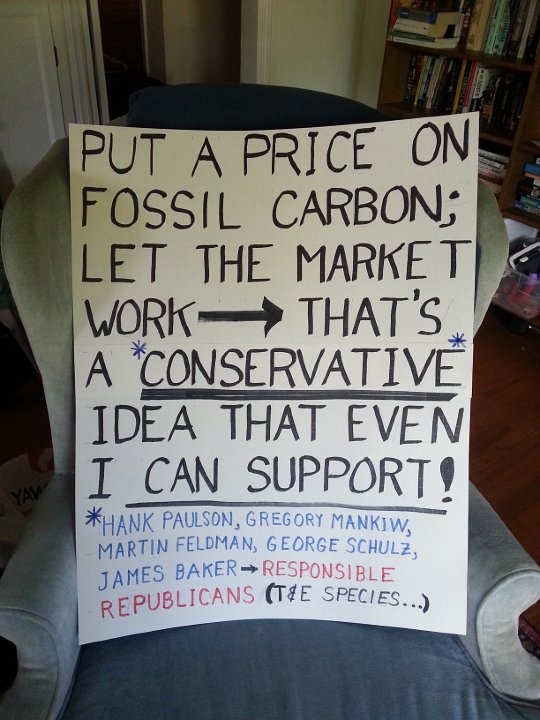 PUT A PRICE ON
FOSSIL CARBON;
LET THE MARKET
WORK → THAT'S
A *CONSERVATIVE*
IDEA THAT EVEN
I CAN SUPPORT!
*HANK PAULSON, GREGORY MANKIW,
MARTIN FELDMAN, GEORGE SCHULZ,
JAMES BAKER → RESPONSIBLE
REPUBLICANS (T&E SPECIES...)